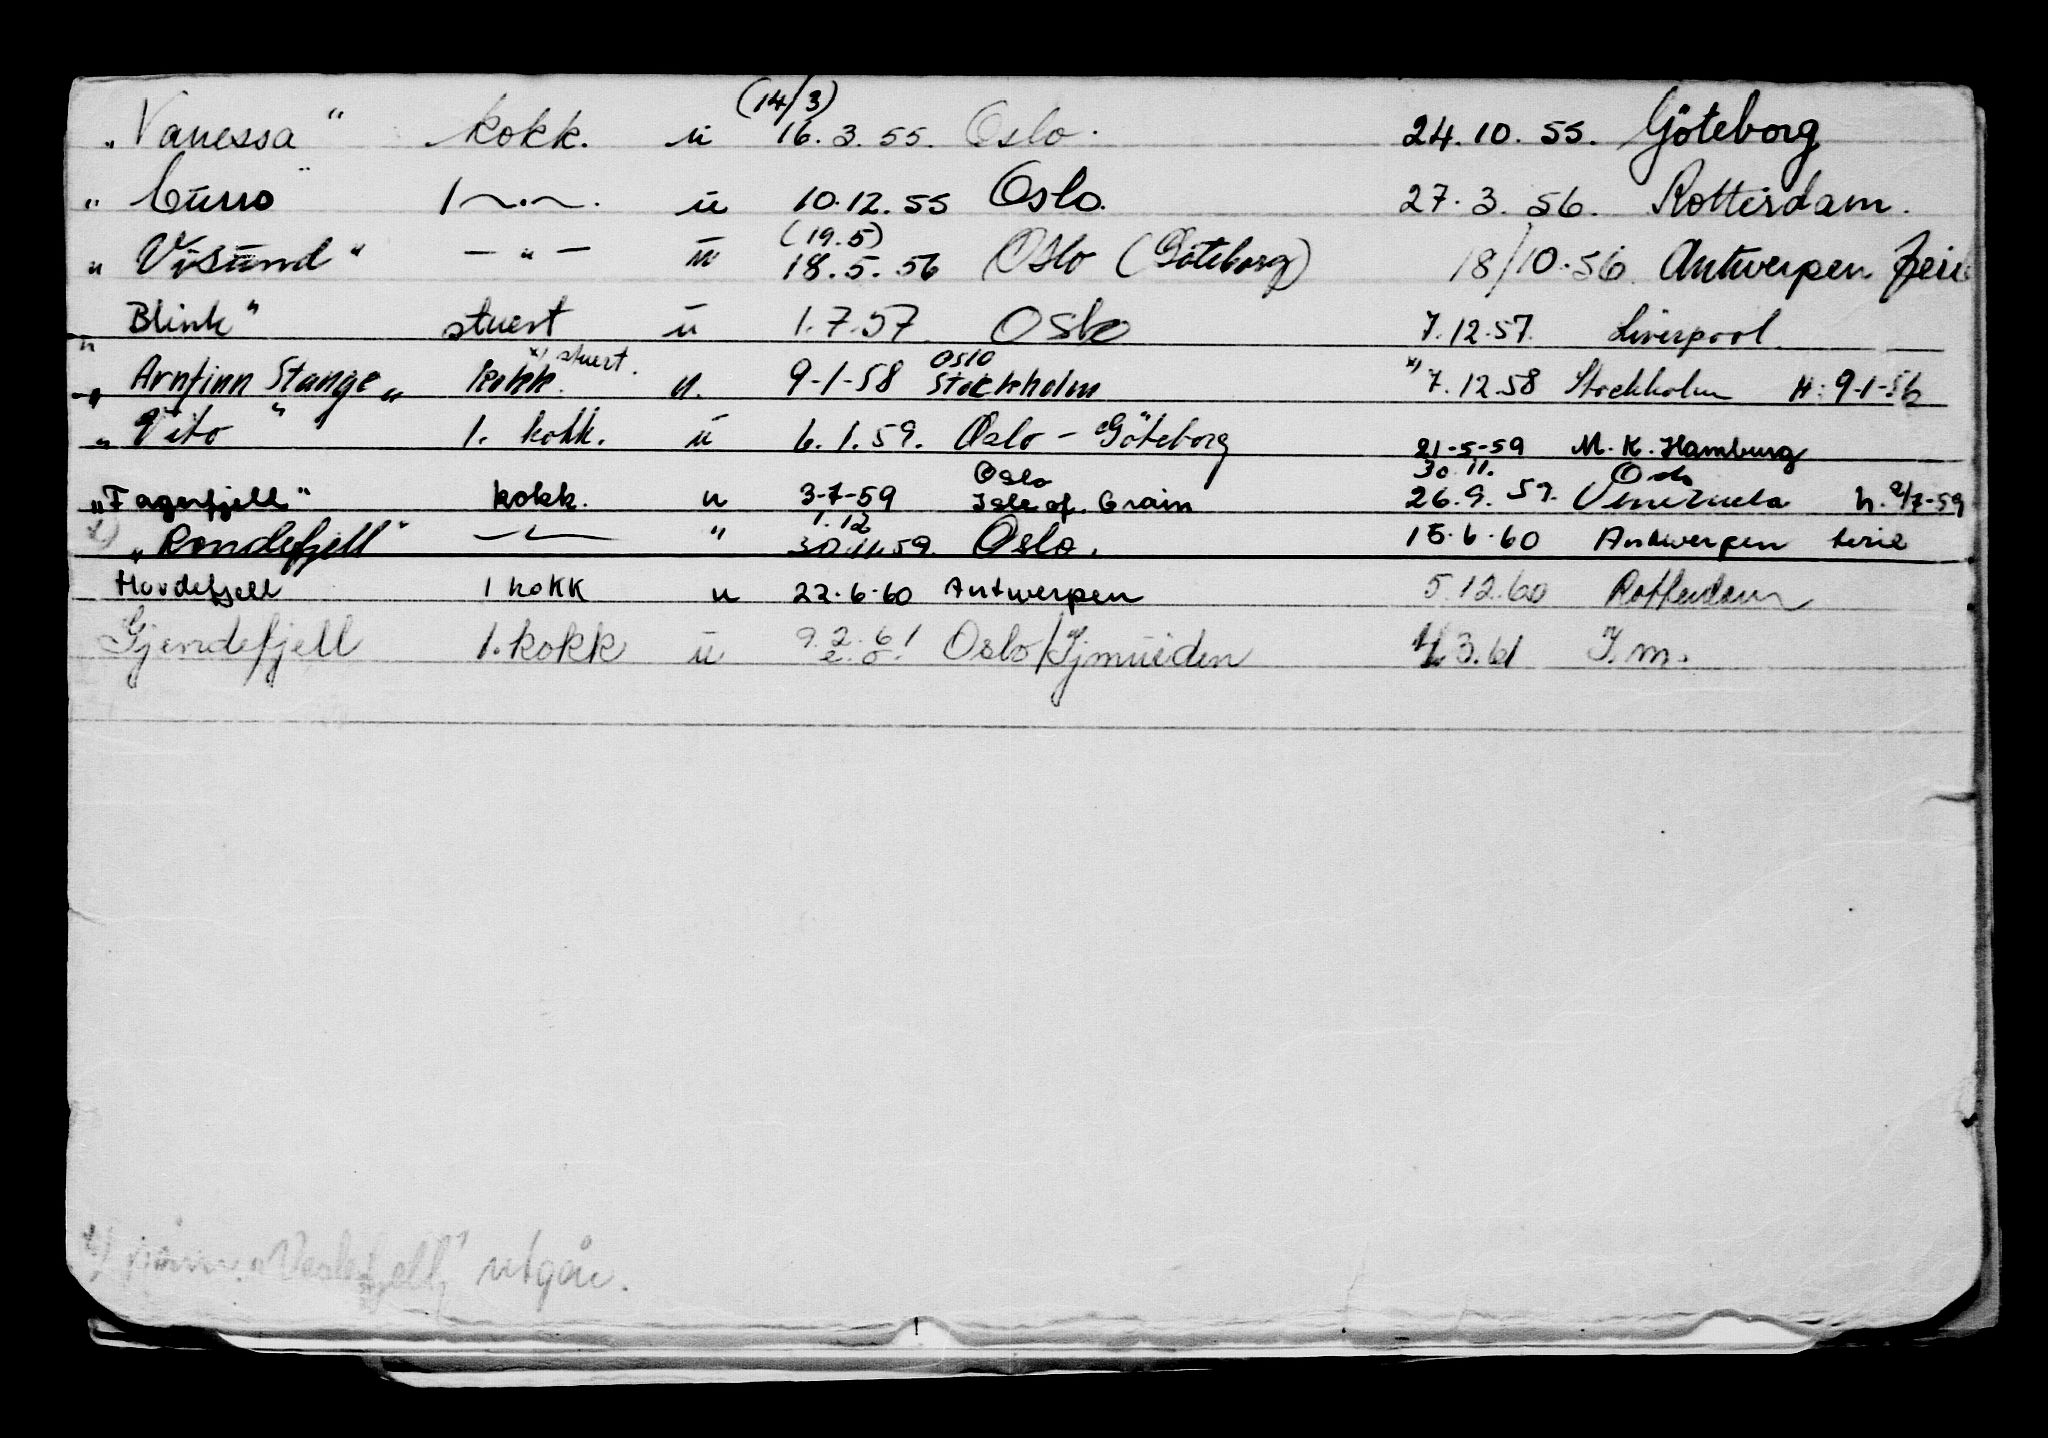 (14/3)
„Vanessa" kokk. u 16.3.55. Oslo. 24.10.55. Göteborg
" 1 -"-. u 10.12.55 Oslo. 27.3.56. Rotterdam.
(19.5)
" Visund" -"- u 18.5.56 Oslo (Göteborg) 18/10.56. Antwerpen ferie
" Blink" stuert u 1.7.57 Oslo 7.12.57. Liverpool.
x) stuert. Oslo
„Arnfinn Stange" kokk. u. 9-1-58 Stockholm x) 7.12.58 Stockholm H: 9-1-
„Vito" 1. kokk. u 6.1.59. Oslo - Göteborg 21-5-59 M.K. Hamburg
Oslo 30.11. Oslo
„Fagerfjell" kokk. u 3-7-59 Isle of. Grain 26.9.59. Venezuela h. 2/7-59
1.12
x) „Rondefjell" -"- " 30.11.59. Oslo. 15.6.60 Antwerpen ferie
Hovdefjell 1 kokk u 22.6.60 Antwerpen 5.12.60 Rotterdam
Gjendefjell 1. kokk u 9.2.61 Oslo/Ijmuiden 3.61 I.m.
x) „Veslefjell" utgår.